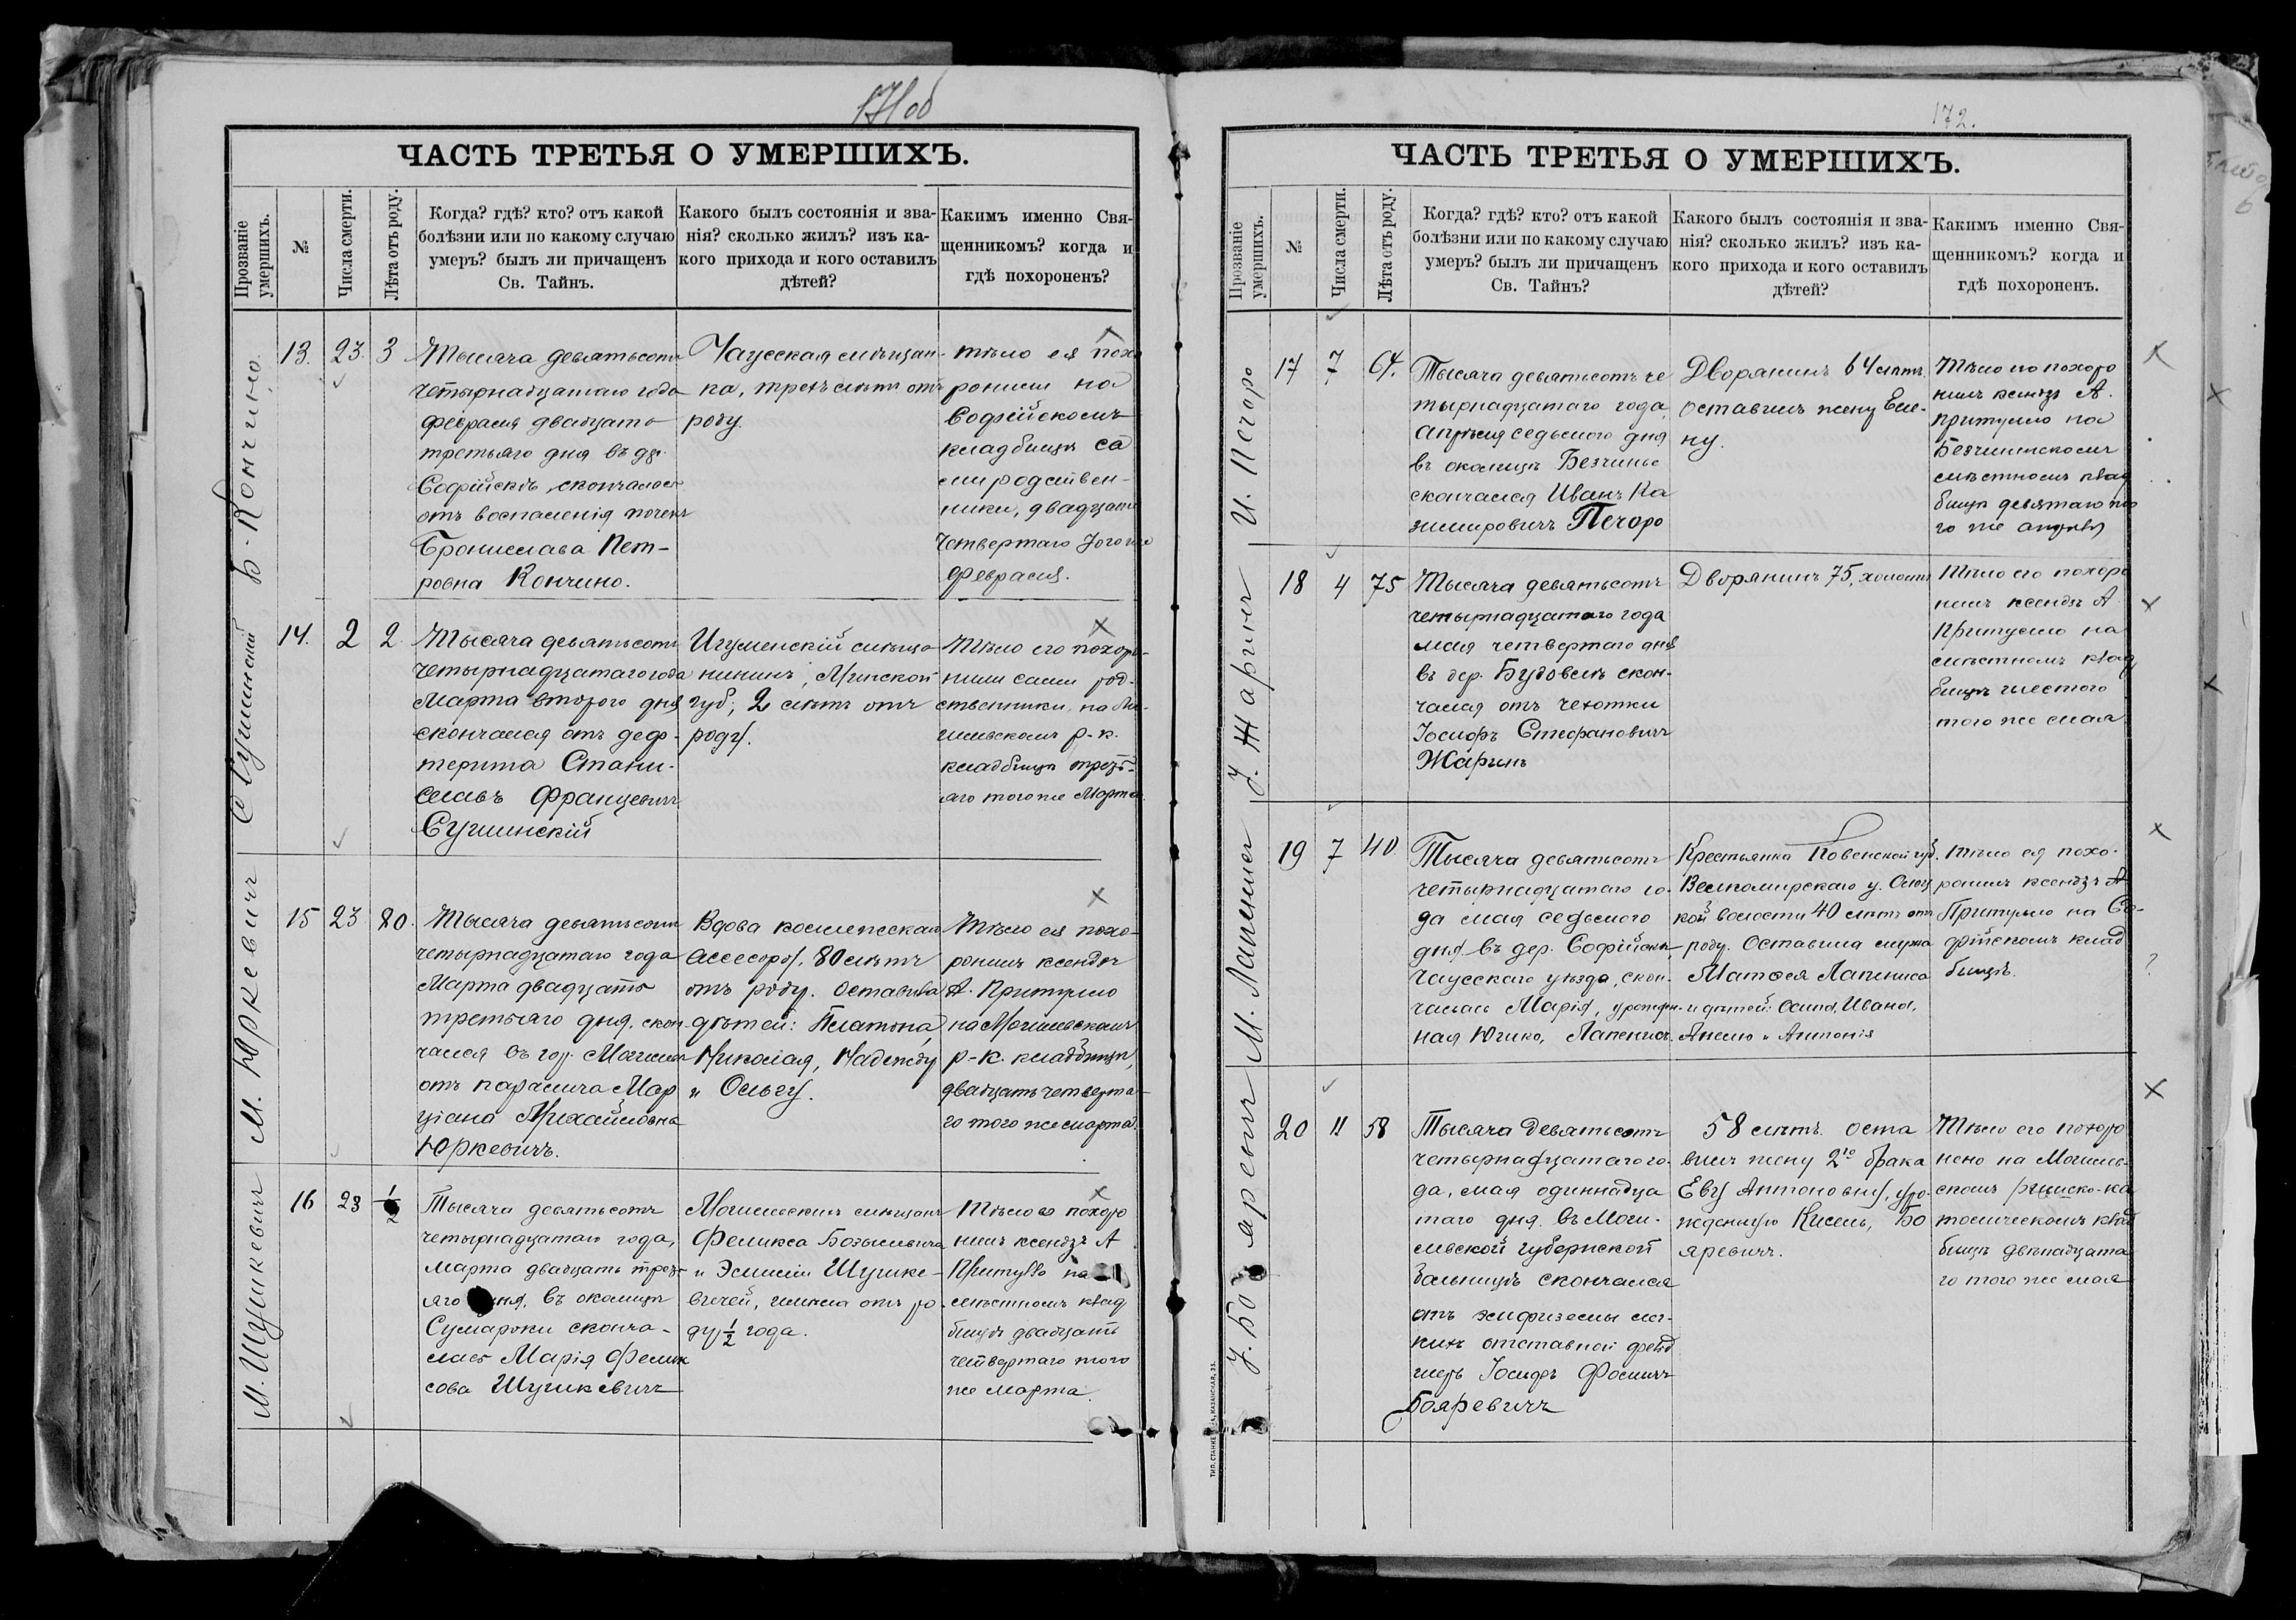 171об
ЧАСТЬ ТРЕТЬЯ О УМЕРШИХЪ.
Прозваніе умершихъ.
№
Числа смерти.
Лѣта отъ роду.
Когда? гдѣ? кто? отъ какой
болѣзни или по какому случаю
умеръ? былъ ли причащенъ
Св. Тайнъ.
Какого былъ состоянія и зва-
нія? сколько жилъ? изъ ка-
кого прихода и кого оставилъ
дѣтей?
Каким именно Свя-
щенникомъ? когда и
гдѣ похороненъ?
Б. Кончино.
13.
23.
3
Тысяча девятьсотъ
четырнадцатаго года
февраля двадцать
третьяго дня въ др.
Софійскъ, скончалась
отъ воспаленія почекъ
Бронислава Пет-
ровна Кончино.
Чаусская мѣщан-
ка, трехъ лѣтъ отъ
роду.
тѣло ея похо
ронили на
Софійскомъ
кладбищѣ са
ми родствен-
ники, двадцать
четвертаго того же
февраля.
С Сушинскій
14.
2
2.
Тысяча девятьсотъ
четырнадцатаго года
Марта второго дня
скончался отъ диф-
терита Стани-
славъ Францевичъ
Сушинскій
Игуменскій мѣща-
нинъ, Минской
губ; 2 лѣтъ отъ
роду.
Тѣло его похоро-
нили сами род-
ственники, на Мо-
гилевскомъ р-к.
кладбищѣ треть-
яго того же Марта.
М. Юркевичъ
15
23
80.
Тысяча девятьсотъ
четырнадцатаго года
Марта двадцать
третьяго дня, скон-
чался въ гор. Могилевѣ
отъ паралича Мар
ціана Михайловна
Юркевичъ.
Вдова коллежскаго
ассесора, 80 лѣтъ
отъ роду. Оставила
дѣтей: Платона,
Николая, Надежду
и Ольгу.
Тѣло ея похо-
ронилъ ксендзъ
А. Притулло
на Могилевскомъ
р-к. кладбищѣ,
двадцать четверта-
го того же марта.
М. Шушкевичъ
16
23
1/2
Тысяча девятьсотъ
четырнадцатаго года,
марта двадцать треть
яго дня, въ околицѣ
Сумароки сконча-
лась Марія Феликсова
Шушкевичъ
Могилевскихъ мѣщанъ
Феликса
и Эмиліи Шушке-
вичей, жила отъ ро-
ду 1/2 года.
Тѣло ея похоро
нилъ ксендзъ А
Притулло на
мѣстномъ клад
бищѣ двадцать
четвертаго того
же марта.
172.
ЧАСТЬ ТРЕТЬЯ О УМЕРШИХЪ.
Прозваніе умершихъ.
№
Числа смерти.
Лѣта отъ роду.
Когда? гдѣ? кто? отъ какой
болѣзни или по какому случаю
умеръ? былъ ли причащенъ
Св. Тайнъ?
Какого былъ состоянія и зва-
нія? сколько жилъ? изъ ка-
кого прихода и кого оставилъ
дѣтей?
Какимъ именно Свя-
щенникомъ? когда и
гдѣ похороненъ.
И. Печоро
17
7
64.
Тысяча девятьсотъ че
тырнадцатаго года,
апрѣля седьмого дня
въ околицѣ Безчинье
скончался Иванъ Ка
зимировичъ Печоро
Дворянинъ 64 лѣтъ.
оставилъ жену Еле-
ну.
Тѣло его похоро
нилъ ксендзъ А.
Притулло на
Безчинскомъ
мѣстномъ клад
бищѣ девятаго то
го же апрѣля
І. Жаринъ
18
4
75
Тысяча девятьсотъ
четырнадцатаго года
мая четвертаго дня
въ дер. Будовелъ скон-
чался отъ чехотки
Іосифъ Стефановичъ
Жаринъ
Дворянинъ 75, холостъ
Тѣло его похоро
нилъ ксендзъ А.
Притулло на
мѣстномъ клад
бищѣ шестого
того же мая
М. Лапеннсъ
19
7
40
Тысяча девятьсотъ
четырнадцатаго го-
да мая седьмого
дня въ дер. Софійскъ,
чаусскаго уѣзда, скон-
чалась Марія, урожден-
ная Юшко, Лапенисъ.
Крестьянка Ковенской губ.
Велкомирскаго у.
кой волости 40 лѣтъ отъ
роду. Оставила мужа
Матѳея Лапениса
и дѣтей: Осипа, Ивана,
Анелю и Антонія
Тѣло ея похо-
ронилъ ксендзъ А
Притулло на Со-
фійскомъ клад
бищѣ.
?
І. Бояревичъ
20
11
58
Тысяча девятьсотъ
четырнадцатаго го-
да, мая одиннадца
таго дня въ Моги-
левской губернской
больницѣ скончался
отъ эмфиземы лег-
кихъ отставной фельд
шеръ Іосифъ Фомичъ
Бояревичъ
58 лѣтъ. оста
вилъ жену 2го брака
Еву Антоновну, уро-
жденную Кисель, Бо
яревичъ.
Тѣло его похоро
нено на Могилев-
скомъ римско-ка
толическомъ клад
бищѣ двѣнадцата
го того же мая